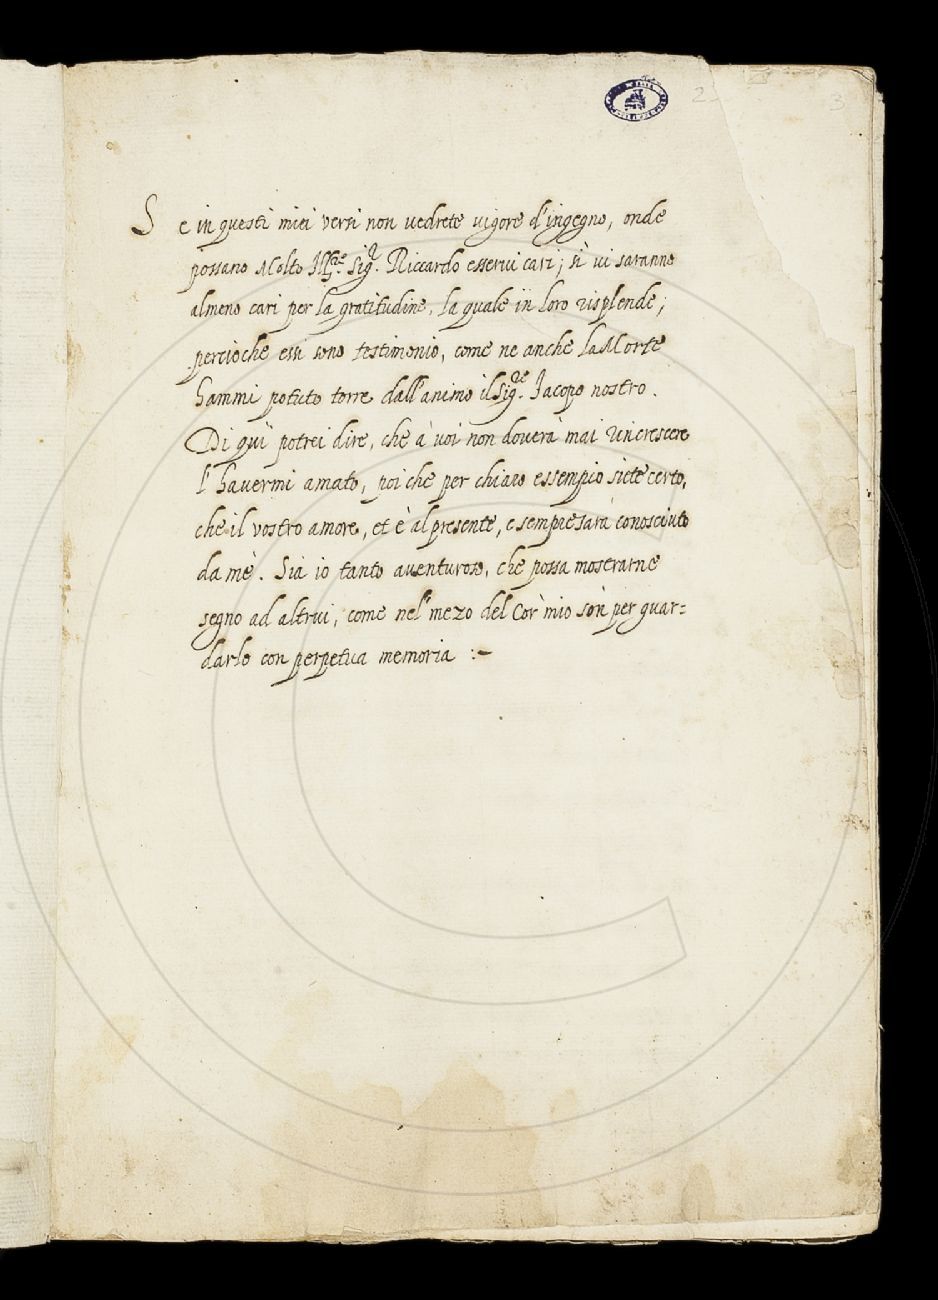 2
3
Se in questi miei versi non vedrete vigore d'ingegno, onde
possano Molto Ill.re Sig.r Riccardo esservi cari; sì vi saranno
almeno cari per la gratitudine, la quale in loro risplende;
percioche essi sono testimonio, come ne anche la Morte
hammi potuto torre dall'animo il Sig.re Jacopo nostro.
Di quì potrei dire, che à voi non doverà mai rincrescere
l'havermi amato, poi che per chiaro essempio siete certo,
che il vostro amore, et è al presente, e sempre sarà conosciuto
da mè. Sia io tanto aventuroso, che possa mostrarne
segno ad altrui, come nel mezo del Cor mio son per guar=
darlo con perpetua memoria :~